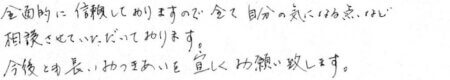 全面的に信頼しておりますので全て自分の気になる点など
相談させていただいております。
今後とも長いおつきあいを宜しくお願い致します。